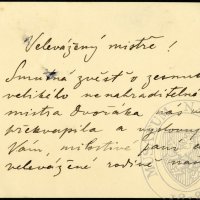 Velevážený mistře!
Smutná zvěst o zesnutí
velikého nenahraditelného
mistra Dvořáka nás v
překvapila a vyslovuj
Vám, milostivé paní a
velevážené rodině naš
MUSEUM